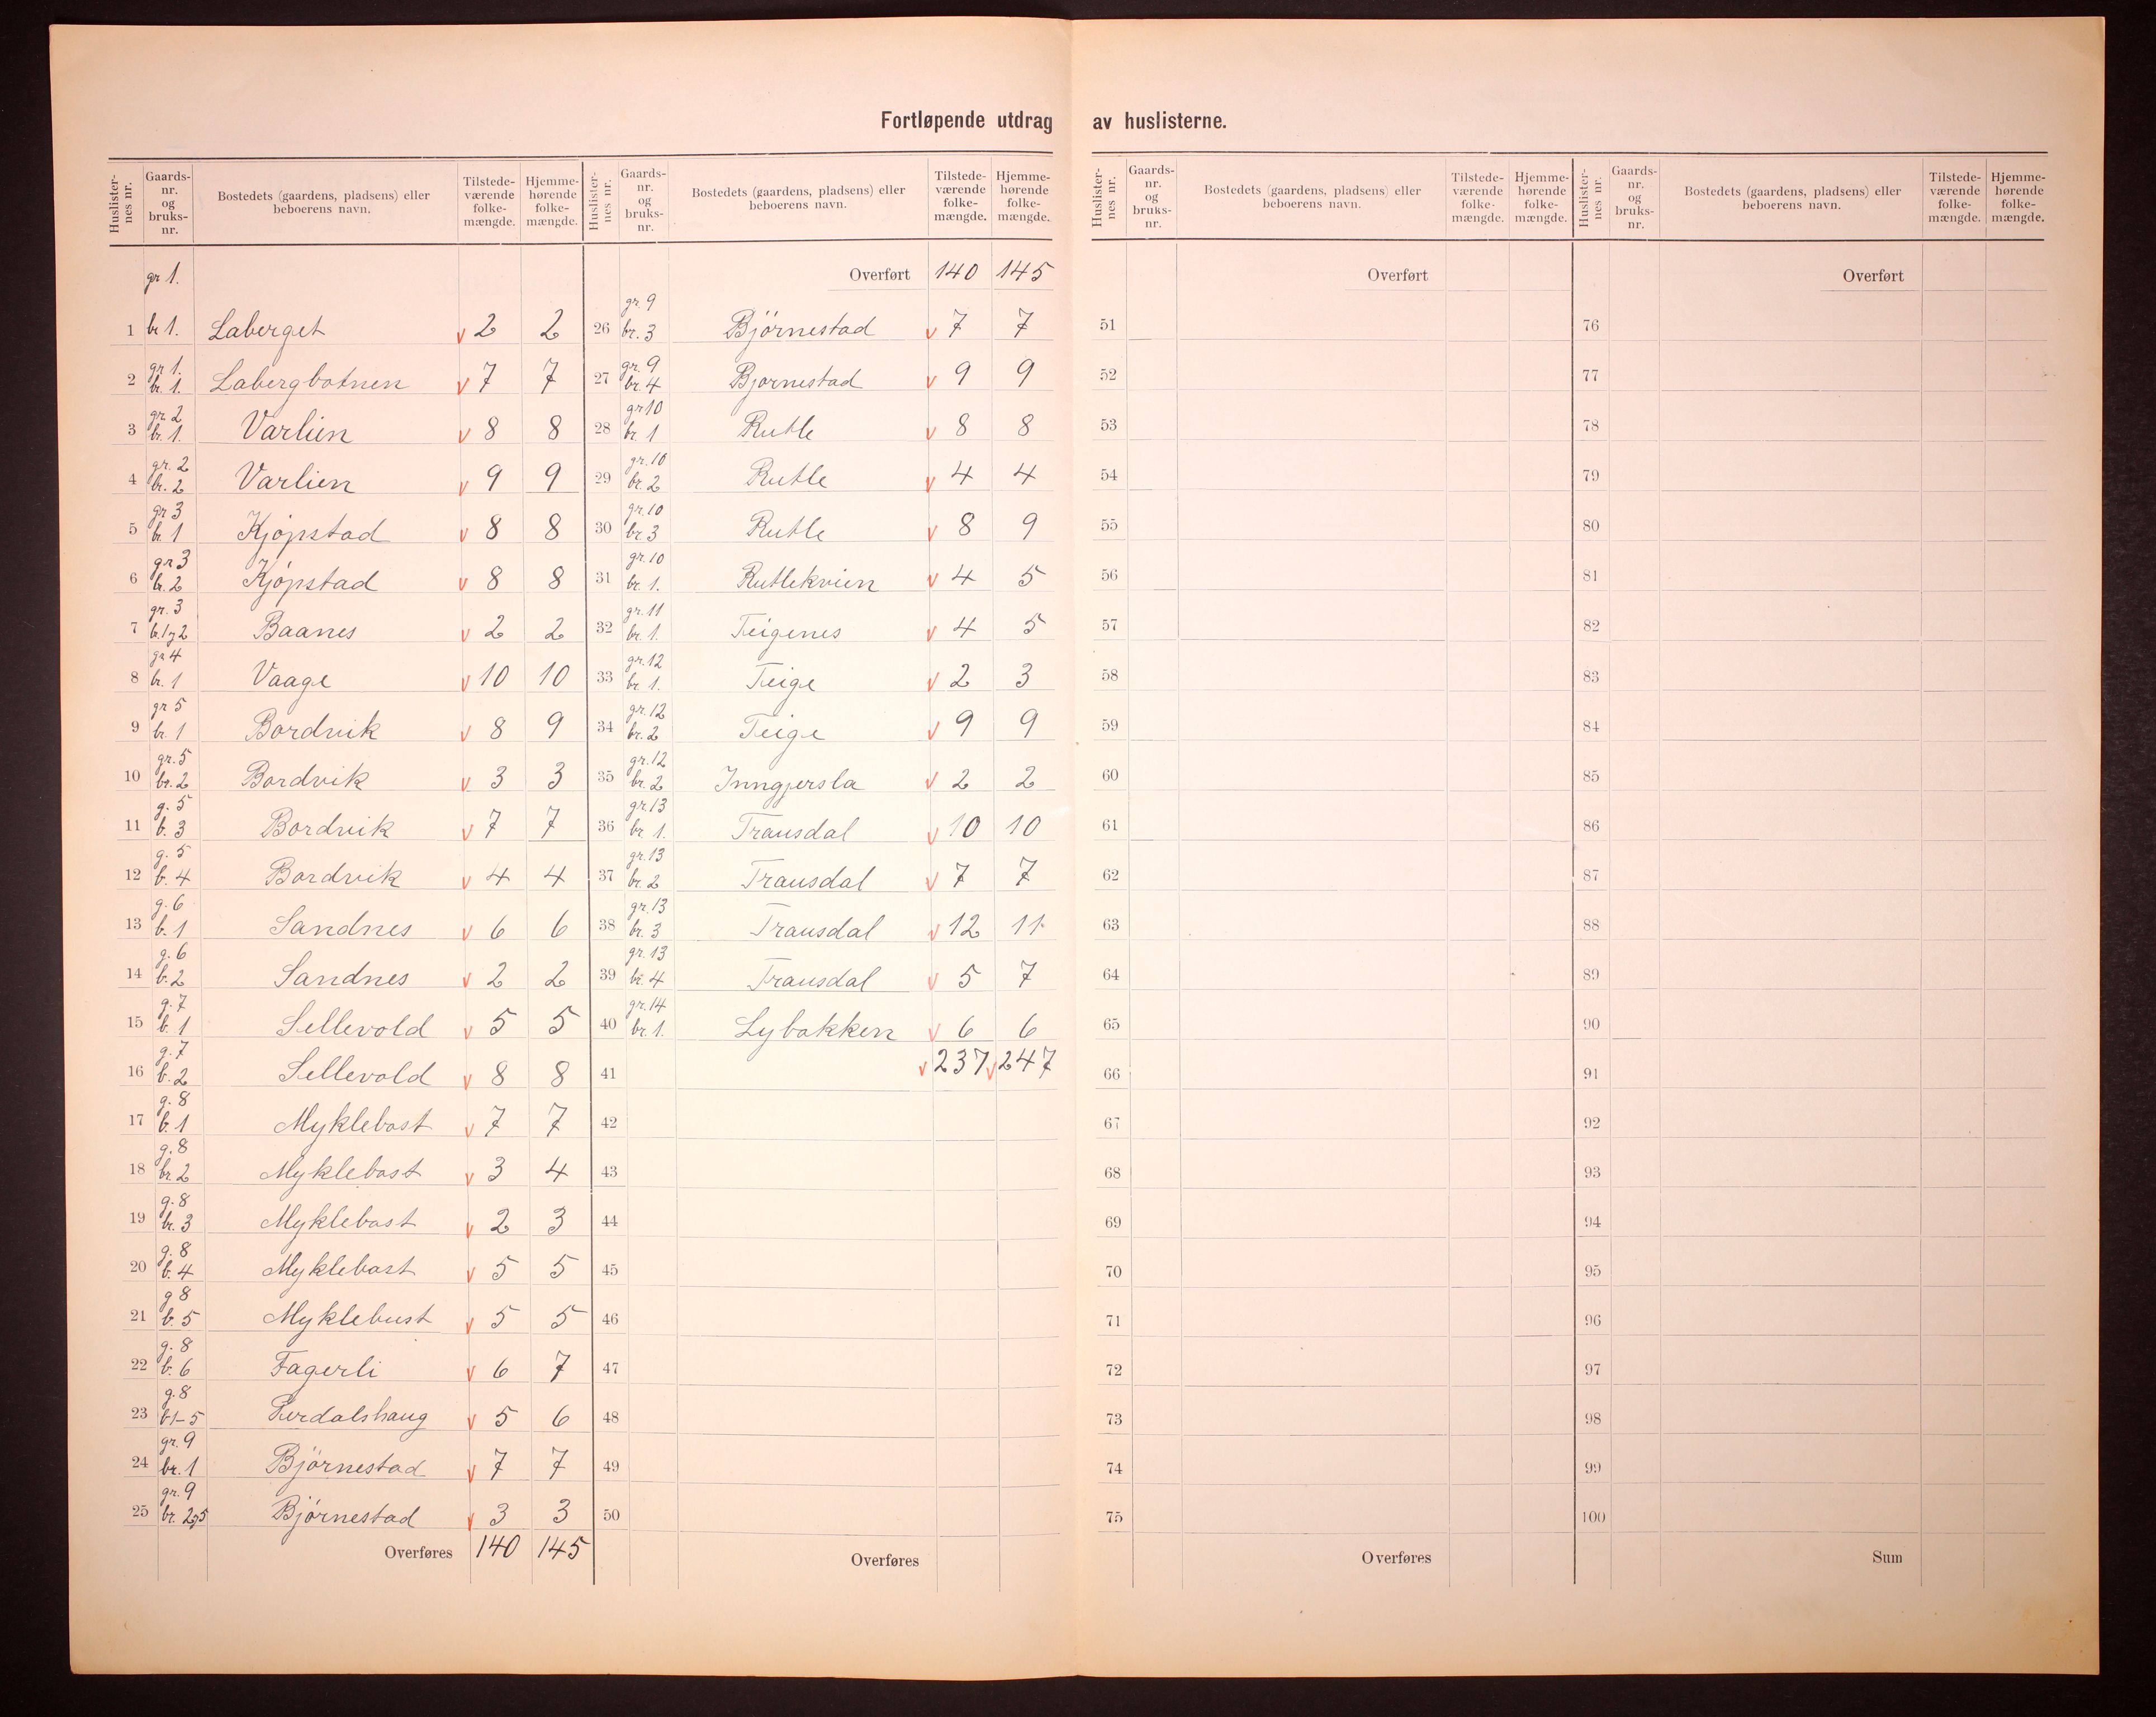 Fortløpende utdrag av huslisterne.
Huslister-nes nr. | Gaards-nr. og bruks-nr. | Bostedets (gaardens, pladsens) eller beboerens navn. | Tilstede-værende folke-mængde. | Hjemme-hørende folke-mængde.
gr 1.
1 br 1. Laberget v 2 2
2 gr 1. br. 1. Labergbotnen v 7 7
3 gr 2 br. 1. Varlien v 8 8
4 gr. 2 br. 2 Varlien v 9 9
5 gr 3 br. 1 Kjøpstad v 8 8
6 gr 3 br. 2 Kjøpstad v 8 8
7 gr. 3 br. 1 og 2 Baanes v 2 2
8 gr 4 br. 1 Vaage v 10 10
9 gr 5 br. 1 Bordvik v 8 9
10 gr. 5 br. 2 Bordvik v 3 3
11 g. 5 b. 3 Bordvik v 7 7
12 g. 5 b. 4 Bordvik v 4 4
13 g. 6 b. 1 Sandnes v 6 6
14 g. 6 b. 2 Sandnes v 2 2
15 g. 7 b. 1 Sellevold v 5 5
16 g. 7 b. 2 Sellevold v 8 8
17 g. 8 b. 1 Myklebost v 7 7
18 g. 8 br. 2 Myklebost v 3 4
19 g. 8 br. 3 Myklebost v 2 3
20 g. 8 b. 4 Myklebost v 5 5
21 g 8 b. 5 Myklebust v 5 5
22 g. 8 b. 6 Fagerli v 6 7
23 g. 8 b 1-5 v 5 6
24 gr. 9 br. 1 Björnestad v 7 7
25 gr. 9 br. 2 og 5 Björnestad v 3 3
Overføres 140 145
Huslister-nes nr. | Gaards-nr. og bruks-nr. | Bostedets (gaardens, pladsens) eller beboerens navn. | Tilstede-værende folke-mængde. | Hjemme-hørende folke-mængde.
Overført 140 145
26 gr. 9 br. 3 Björnestad v 7 7
27 gr. 9 br. 4 Bjornestad v 9 9
28 gr 10 br. 1 Rutle v 8 8
29 gr. 10 br. 2 Rutle v 4 4
30 gr. 10 br. 3 Rutle v 8 9
31 gr. 10 br. 1. Rutlekvien v 4 5
32 gr. 11 br. 1. Teigenes v 4 5
33 gr. 12 br 1. Teige v 2 3
34 gr. 12 br. 2 Teige v 9 9
35 gr. 12 br. 2 Inngjersla v 2 2
36 gr. 13 br 1. Transdal v 10 10
37 gr. 13 br. 2 Transdal v 7 7
38 gr. 13 br. 3 Transdal v 12 11
39 gr. 13 br. 4 Transdal v 5 7
40 gr. 14 br. 1. Lybakken v 6 6
41 v 237 v 247
42
43
44
45
46
47
48
49
50
Overføres
Huslister-nes nr. | Gaards-nr. og bruks-nr. | Bostedets (gaardens, pladsens) eller beboerens navn. | Tilstede-værende folke-mængde. | Hjemme-hørende folke-mængde.
Overført
51
52
53
54
55
56
57
58
59
60
61
62
63
64
65
66
67
68
69
70
71
72
73
74
75
Overføres
Huslister-nes nr. | Gaards-nr. og bruks-nr. | Bostedets (gaardens, pladsens) eller beboerens navn. | Tilstede-værende folke-mængde. | Hjemme-hørende folke-mængde.
Overført
76
77
78
79
80
81
82
83
84
85
86
87
88
89
90
91
92
93
94
95
96
97
98
99
100
Sum